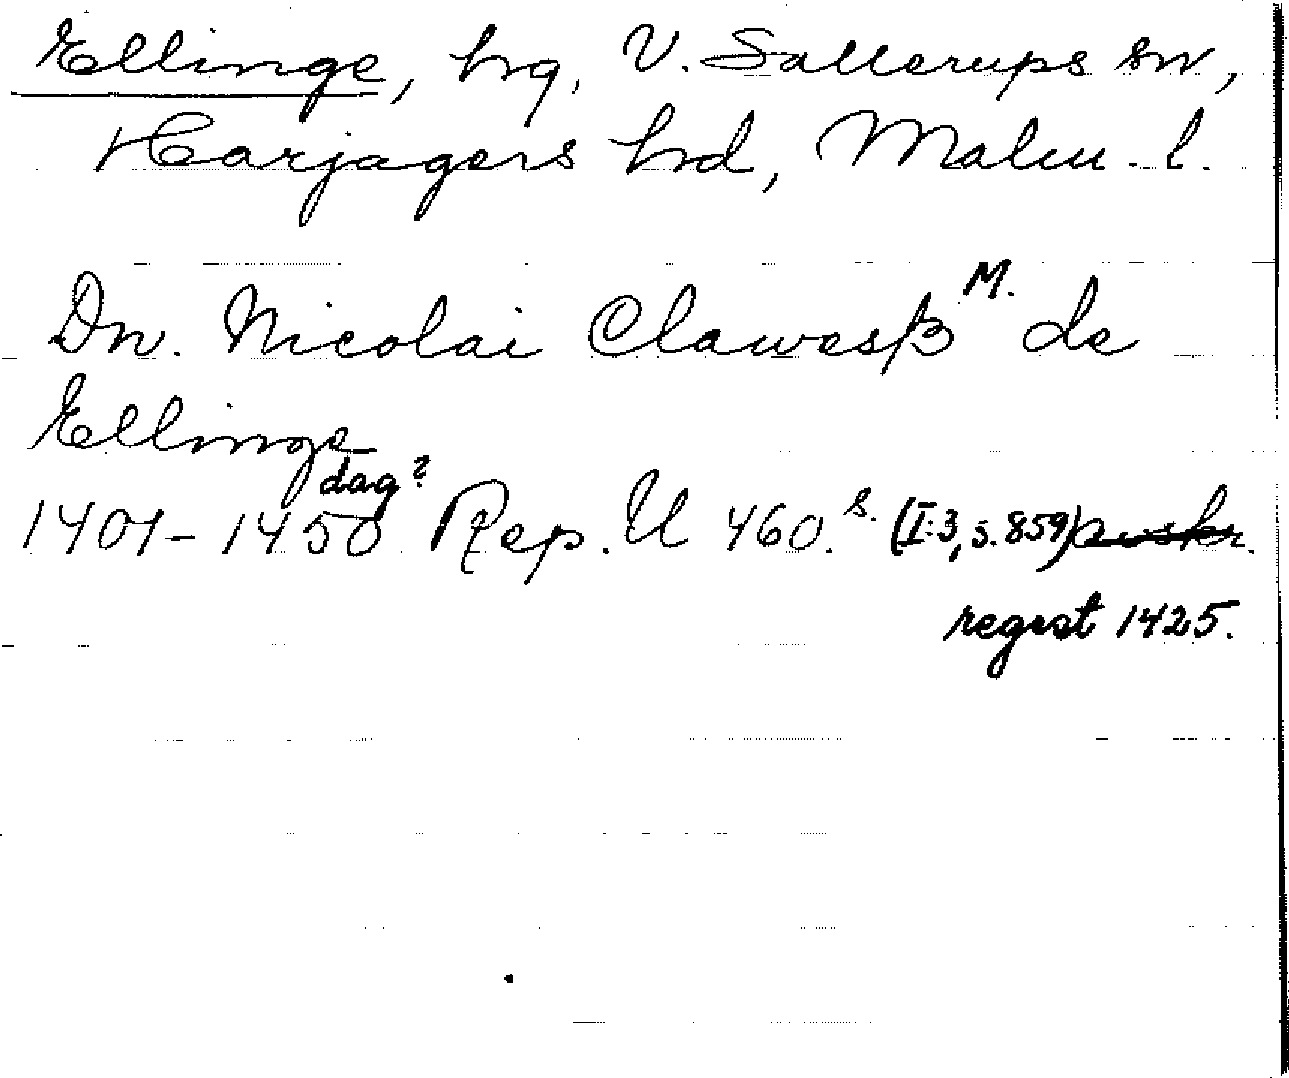 Ellinge, hrg, V. Sallerups sn,
Harjagers hrd, Malm. l.
Dn. Nicolai Clawesß M. de
Ellinge
dag?
1401-1450 Rep. U 460. s. (I:3, s. 859)
regest 1425.